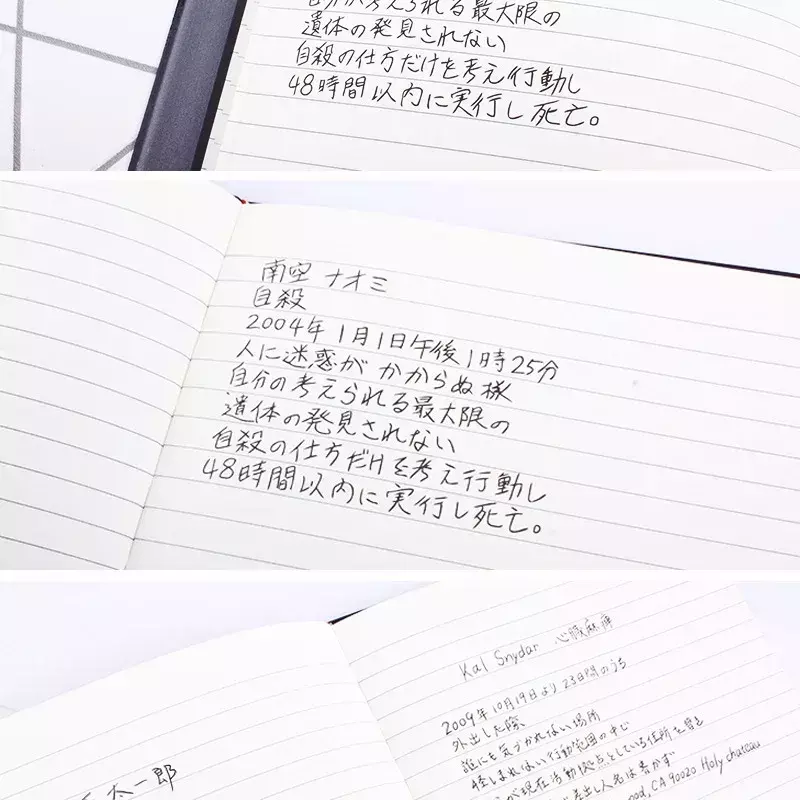 自分が考えられる最大限の
遺体の発見されない
自殺の仕方だけを考え行動し
48時間以内に実行し死亡。
南空 ナオミ
自殺
2004年1月1日午後1時25分
人に迷惑がかからぬ様
自分の考えられる最大限の
遺体の発見されない
自殺の仕方だけを考え行動し
48時間以内に実行し死亡。
太一郎
Kal Snydar 心臓麻痺
2009年10月19日より23日間のうち
外出した際、
誰にも気づかれない場所
怪しまれない行動範囲の中で
が現在活動拠点としている住所を書き
差出し人名は書かず
ood, CA 90020 Holy chateau